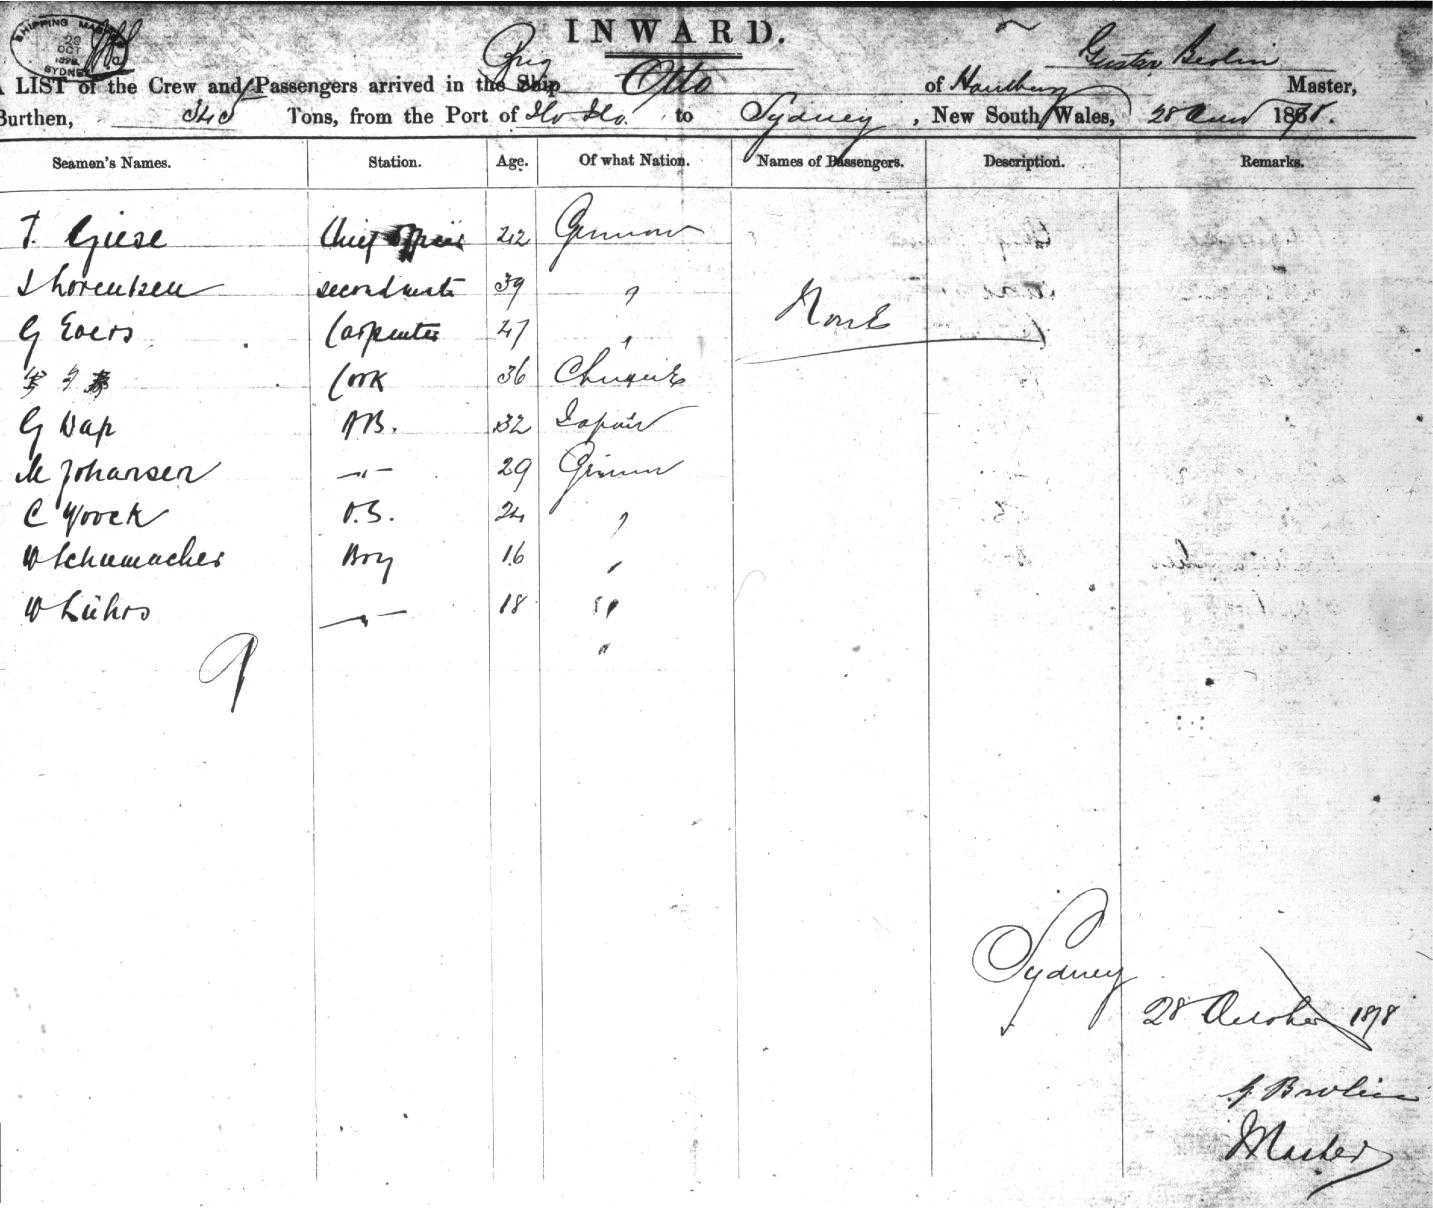 INWARD.
SHIPPING MASTER
28
OCT
1878
SYDNEY
Gustav
A LIST of the Crew and Passengers arrived in the Ship Brig Otto of Hamburg Master,
Burthen, 345 Tons, from the Port of Ilo Ilo. to Sydney, New South Wales, 28 1878.
Seamen's Names. Station. Age. Of what Nation. Names of Passengers. Description. Remarks.
T. Giese Chief officer 22 German
Lhorentzen second mate 39 "
None
G Evers Carpenter 47 "
Cook 36 Chinese
G Wap AB. 32 Japan
M Johansen —"— 29 German
C Woock O.S. 24 "
W Schumacher Boy 16 "
W Lührs —"— 18 "
"
9
Sydney
28 October 1878
G Brolin
Master